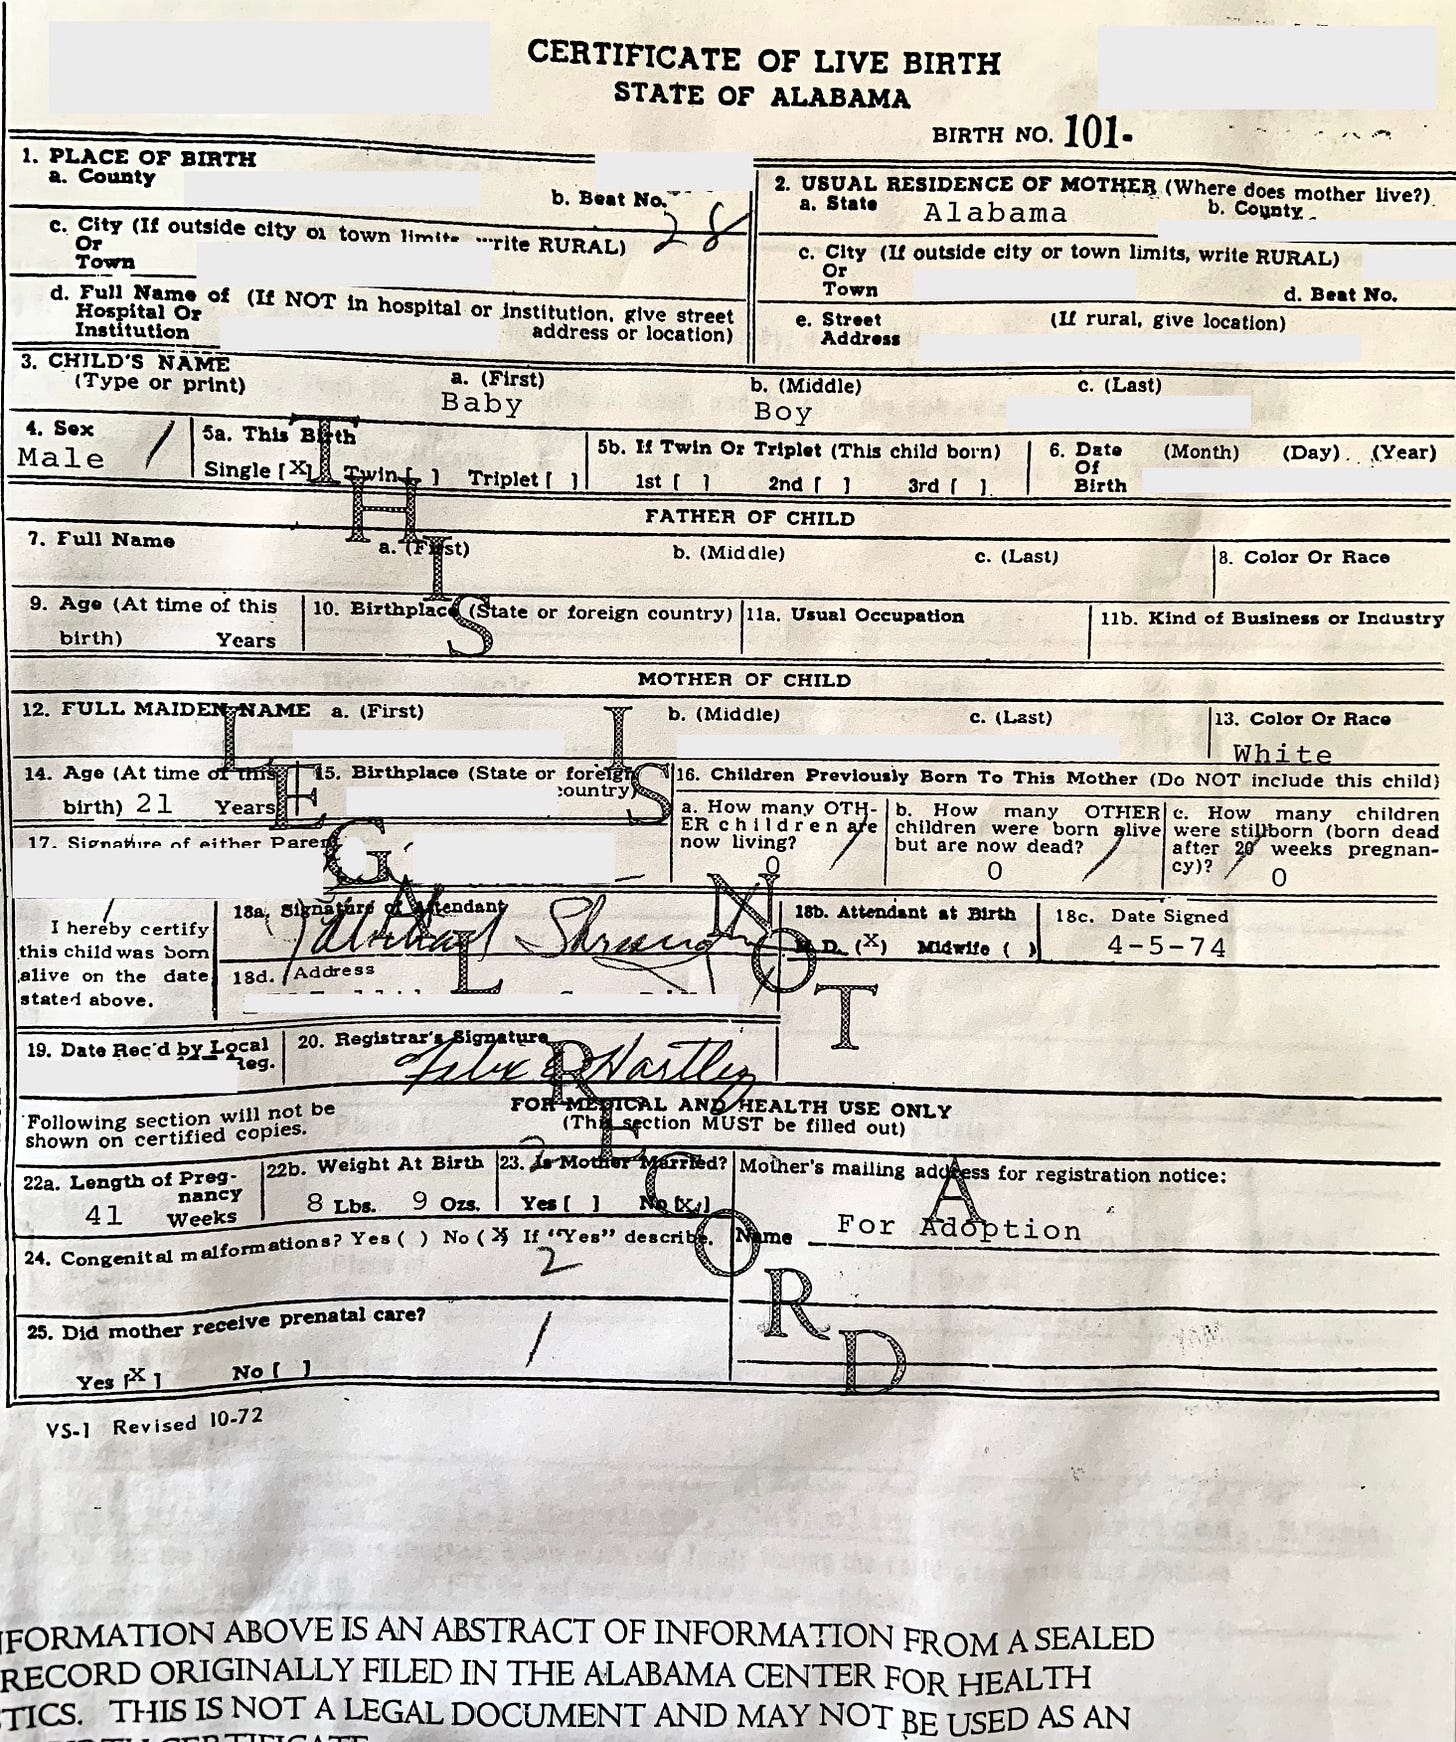 CERTIFICATE OF LIVE BIRTH
STATE OF ALABAMA
BIRTH NO. 101-
1. PLACE OF BIRTH
a. County
b. Beat No.
28
c. City (If outside city or town limits, write RURAL)
Or
Town
d. Full Name of (If NOT in hospital or institution, give street
Hospital Or
Institution address or location)
2. USUAL RESIDENCE OF MOTHER (Where does mother live?)
a. State Alabama b. County
c. City (If outside city or town limits, write RURAL)
Or
Town
d. Beat No.
e. Street (If rural, give location)
Address
3. CHILD'S NAME
(Type or print)
a. (First) b. (Middle) c. (Last)
Baby Boy
4. Sex
Male
5a. This Birth
Single [X] Twin [ ] Triplet [ ]
5b. If Twin Or Triplet (This child born)
1st [ ] 2nd [ ] 3rd [ ]
6. Date (Month) (Day) (Year)
Of
Birth
FATHER OF CHILD
7. Full Name a. (First) b. (Middle) c. (Last)
8. Color Or Race
9. Age (At time of this
birth) Years
10. Birthplace (State or foreign country)
11a. Usual Occupation
11b. Kind of Business or Industry
MOTHER OF CHILD
12. FULL MAIDEN NAME a. (First) b. (Middle) c. (Last)
13. Color Or Race
White
14. Age (At time of this
birth) 21 Years
15. Birthplace (State or foreign
country)
16. Children Previously Born To This Mother (Do NOT include this child)
a. How many OTH-
ER children are
now living?
0
b. How many OTHER
children were born alive
but are now dead?
0
c. How many children
were stillborn (born dead
after 20 weeks pregnan-
cy)? 0
17. Signature of either Parent
I hereby certify
this child was born
alive on the date
stated above.
18a. Signature of Attendant
Michael
18b. Attendant at Birth
M.D. (X) Midwife ( )
18c. Date Signed
4-5-74
18d. Address
19. Date Rec'd by Local
Reg.
20. Registrar's Signature
Felix E Hartley
Following section will not be
shown on certified copies.
FOR MEDICAL AND HEALTH USE ONLY
(This section MUST be filled out)
22a. Length of Preg-
nancy
41 Weeks
22b. Weight At Birth
8 Lbs. 9 Ozs.
23. Is Mother Married?
Yes [ ] No [X]
Mother's mailing address for registration notice:
Name For Adoption
24. Congenital malformations? Yes ( ) No (X) If "Yes" describe.
2
25. Did mother receive prenatal care?
Yes [X] No [ ]
VS-1 Revised 10-72
THIS
IS
NOT
A
LEGAL
RECORD
NFORMATION ABOVE IS AN ABSTRACT OF INFORMATION FROM A SEALED
RECORD ORIGINALLY FILED IN THE ALABAMA CENTER FOR HEALTH
TICS. THIS IS NOT A LEGAL DOCUMENT AND MAY NOT BE USED AS AN